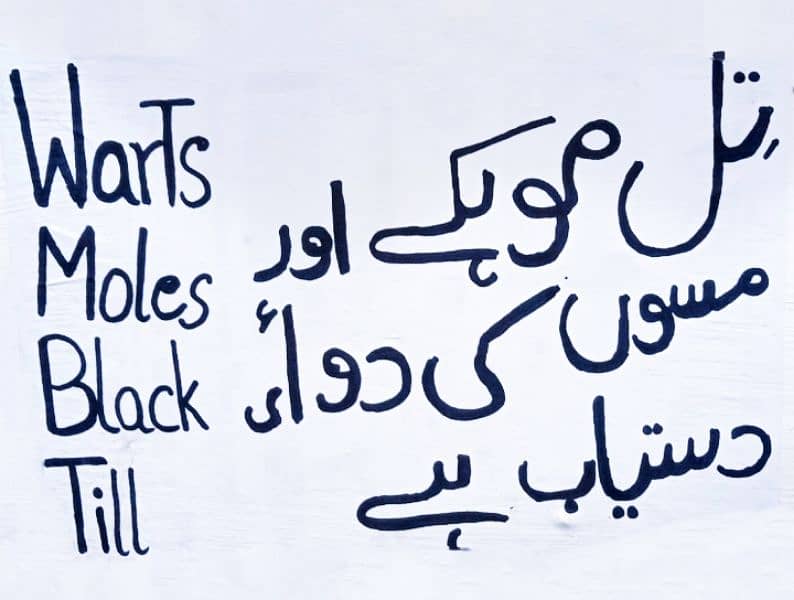 Warts
Moles
Black
Till
تِل موہکے اور
مسوں کی دوائی
دستیاب ہے